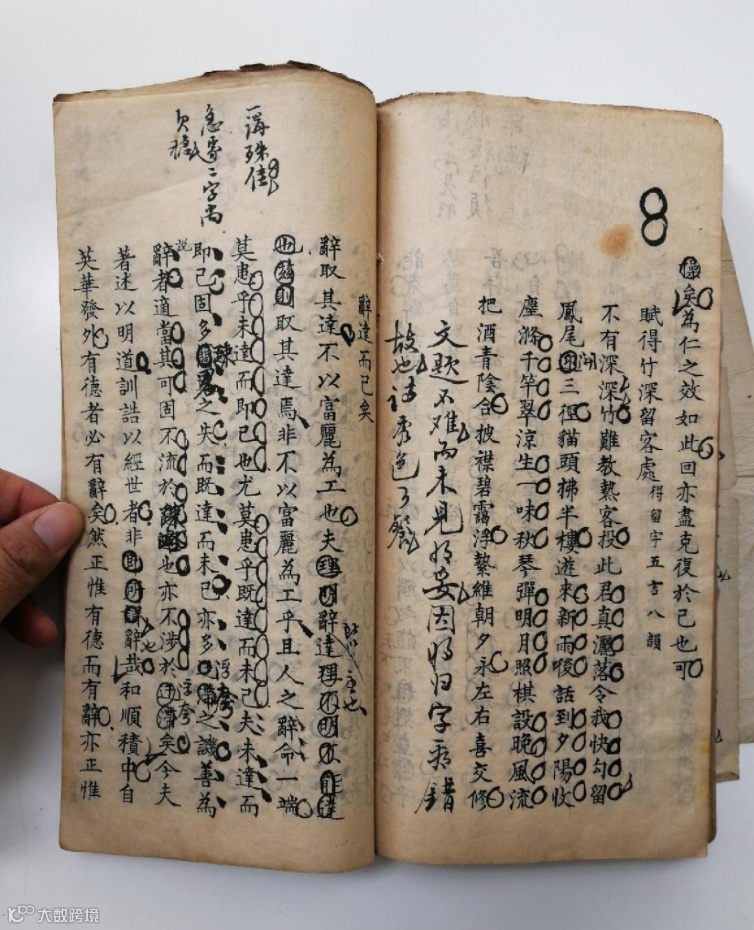 矣為仁之效如此回亦盡克復於己也可
賦得竹深留客處 得留字五言八韻
不有深深竹難教熱客投此君真灑落令我快勾留
鳳尾 湖三徑貓頭拂半樓遊來新雨後話到夕陽收
塵滌千竿翠涼生一味秋琴彈明月照棋設晚風流
把酒青陰合披襟碧靄浮縶維朝夕永左右喜交修
文題不难而未見明妥因明归字看錯
故也詩秀色可餐
辭達而已矣
辭取其達不以富麗為工也夫 辭達
也 則取其達焉非不以富麗為工乎且人之辭命一端
莫患乎未達而即已也尤莫患乎既達而未已夫未達而
即已固多 之失而既達而未已亦多浮夸之譏善為
說辭者適當其可固不流於 也亦不涉於浮夸矣今夫
著述以明道訓誥以經世者非 辭哉和順積中自
英華發外有德者必有辭矣然正惟有德而有辭亦正惟
一講殊佳
急要二字尚
欠穩
大数跨境